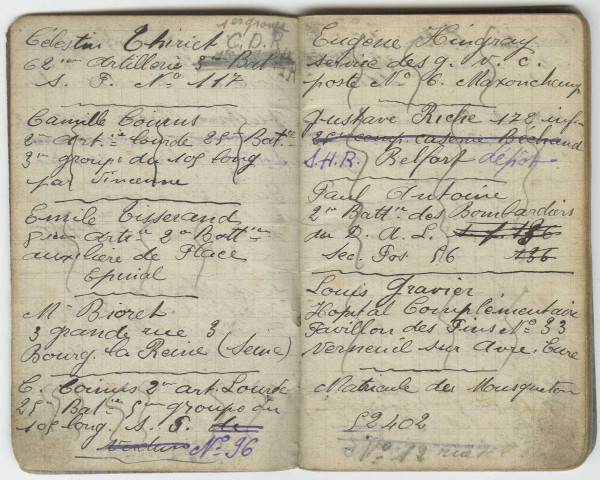 1er groupe
Célestin Thiriet C.D.R.
62me Artillerie 3e Bat.
S. P. No 117
Camille Couns
2me Art.ie lourde 25me Batie
3me groupe du 105 long
par Vincenne
Emile Tisserand
8me Artie 2me Battie
auxiliere de Place
Epinal
Mr Bioret
3 grande rue 3
Bourg la Reine (Seine)
C. Couns 2me art. Lourde
25me Batie 3me groupe du
105 long. S. P. de
No 96
Eugène Hingray
service des g. v. c.
poste No 6. Maxonchamp
Gustave Riche 172 inf
25e comp. caserne Béchaud
S.H.R. Belfort dépôt
Paul Antoine
2me Battie des Bombardiers
du D. A. L. S. P. 186
Sec. Pos. 56 136
Louis Gravier
Hopital Complémentaire
Pavillon des Pins No 33
Verneuil sur Avre. Eure
Matricule du Mousqueton
52402
No 12 rue